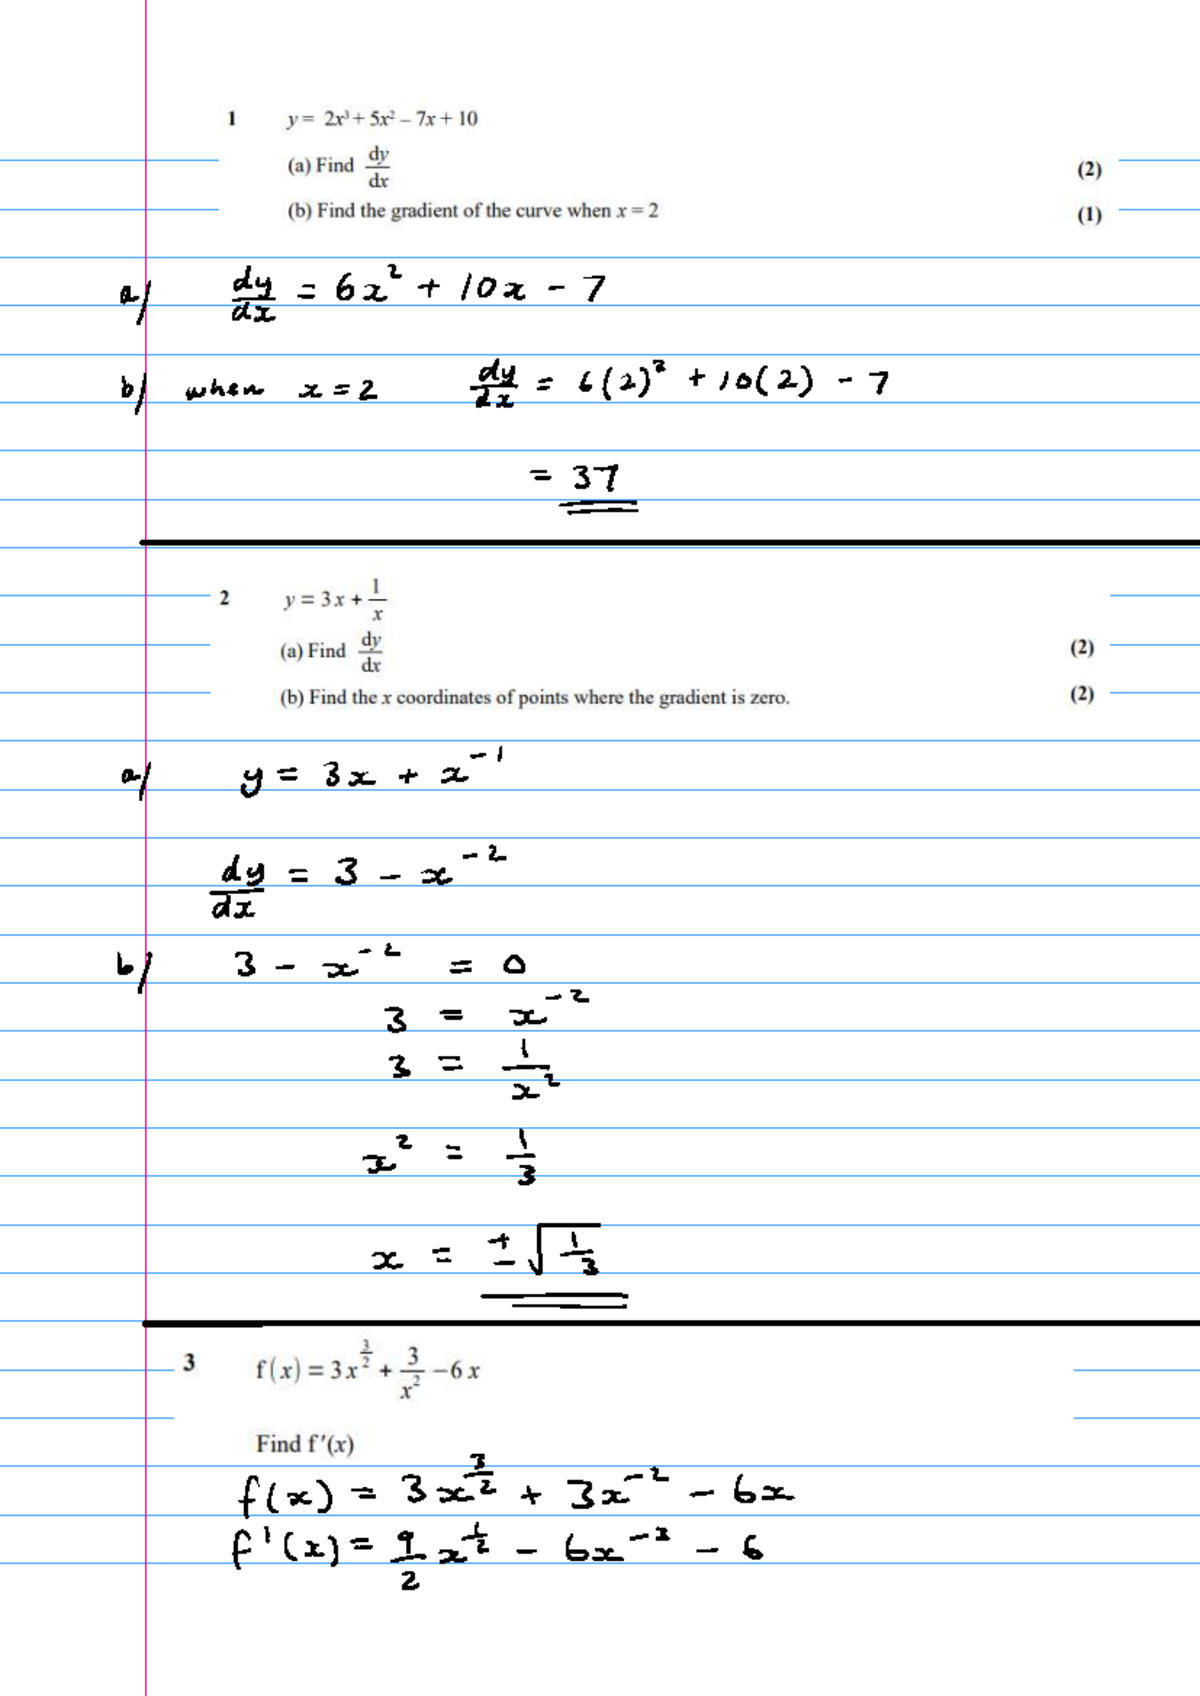 1 y = 2x³ + 5x² – 7x + 10
(a) Find dy/dx (2)
(b) Find the gradient of the curve when x = 2 (1)
a/ dy/dx = 6x² + 10x - 7
b/ when x = 2 dy/dx = 6(2)² + 10(2) - 7
= 37
2 y = 3x + 1/x
(a) Find dy/dx (2)
(b) Find the x coordinates of points where the gradient is zero. (2)
a/ y = 3x + x⁻¹
dy/dx = 3 - x⁻²
b/ 3 - x⁻² = 0
3 = x⁻²
3 = 1/x²
x² = 1/3
x = ±√(1/3)
3 f(x) = 3x^(3/2) + 3/x² – 6x
Find f′(x)
f(x) = 3x^(3/2) + 3x⁻² - 6x
f'(x) = 9/2 x^(1/2) - 6x⁻³ - 6